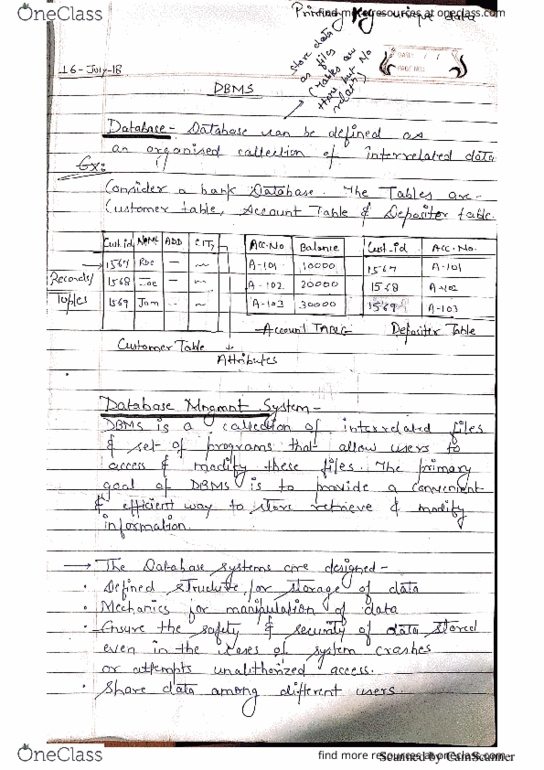 OneClass
find more resources at oneclass.com
store data
as files
(Tables are
there but No
relatn)
16-July-18
DBMS
Database- Database can be defined as
an organised collection of interrelated data
Ex:
Consider a bank Database. The Tables are-
Customer table, Account Table & Depositer table.
Cust.id NAME ADD CITY
1567 Roe — ~
1568 — ~
1569 Jam
Records/
Tuples
Acc.No Balance
A-101 10000
A-102 20000
A-103 30000
Cust.id Acc.No.
1567 A-101
1568 A-102
1569 A-103
Account TABLE
Depositer Table
Customer Table
Attributes
Database Mngmnt System-
DBMS is a collection of interrelated files
& set of programs that allow users to
access & modify these files. The primary
goal of DBMS is to provide a convenient
& efficient way to store retrieve & modify
information.
→ The Database systems are designed-
• Defined structure for storage of data
• Mechanics for manipulation of data
• Ensure the safety & security of data stored
even in the cases of system crashes
or attempts unauthorized access.
• Share data among different users
OneClass
find more resources at oneclass.com
Scanned by CamScanner